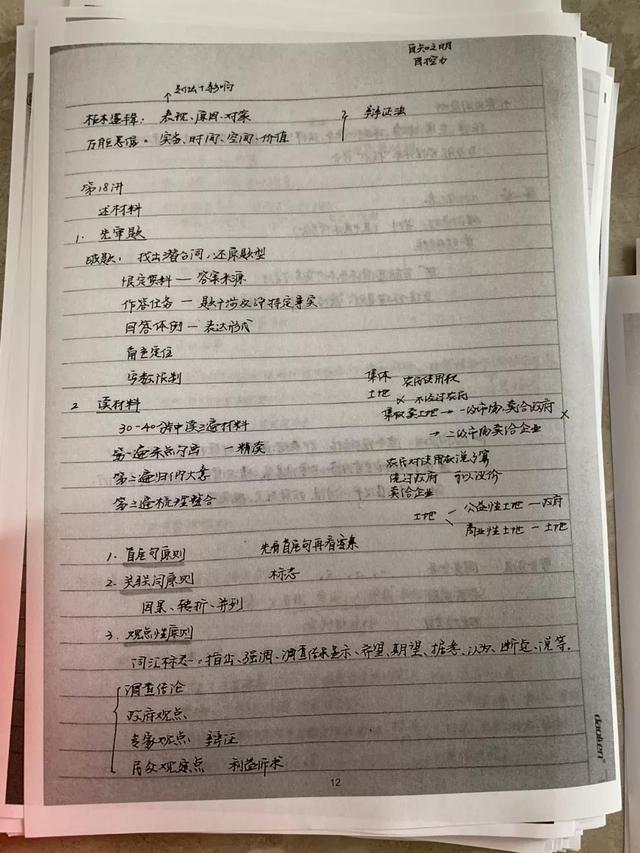 自知之明
自控力
↑ 现状+影响
框本逻辑：表现、原因、对策
2 辩证法
万能思维：实告、时间、空间、价值
第18讲
述材料
1. 先审题
破题：找出潜台词，还原题型
限定资料 — 答案来源
作答任务 — 题干涉及评特定事实
回答体例 — 表达形式
角色定位
字数限制
2 读材料
30-40分钟读三遍材料
第一遍标点勾画 — 精读
第二遍归纳大意
第三遍梳理整合
集体 农民使用权
土地 × 不经过农户
集权卖土地 → 一级市场，卖给政府 ×
→ 二级市场卖给企业
农民对使用权说了算
绕过政府 可以议价
卖给企业
土地 < 公益性土地 — 政府
商业性土地 — 土地
1. 首尾句原则 先看首尾句再看答案
2. 关联词原则 标志
因果、转折、并列
3. 观点性原则
词汇标志：指出、强调、调查结果显示、希望、期望、据悉、认为、断定、说等.
调查结论
政府观点
专家观点 辩证
居众观点 利益诉求
daolten
12